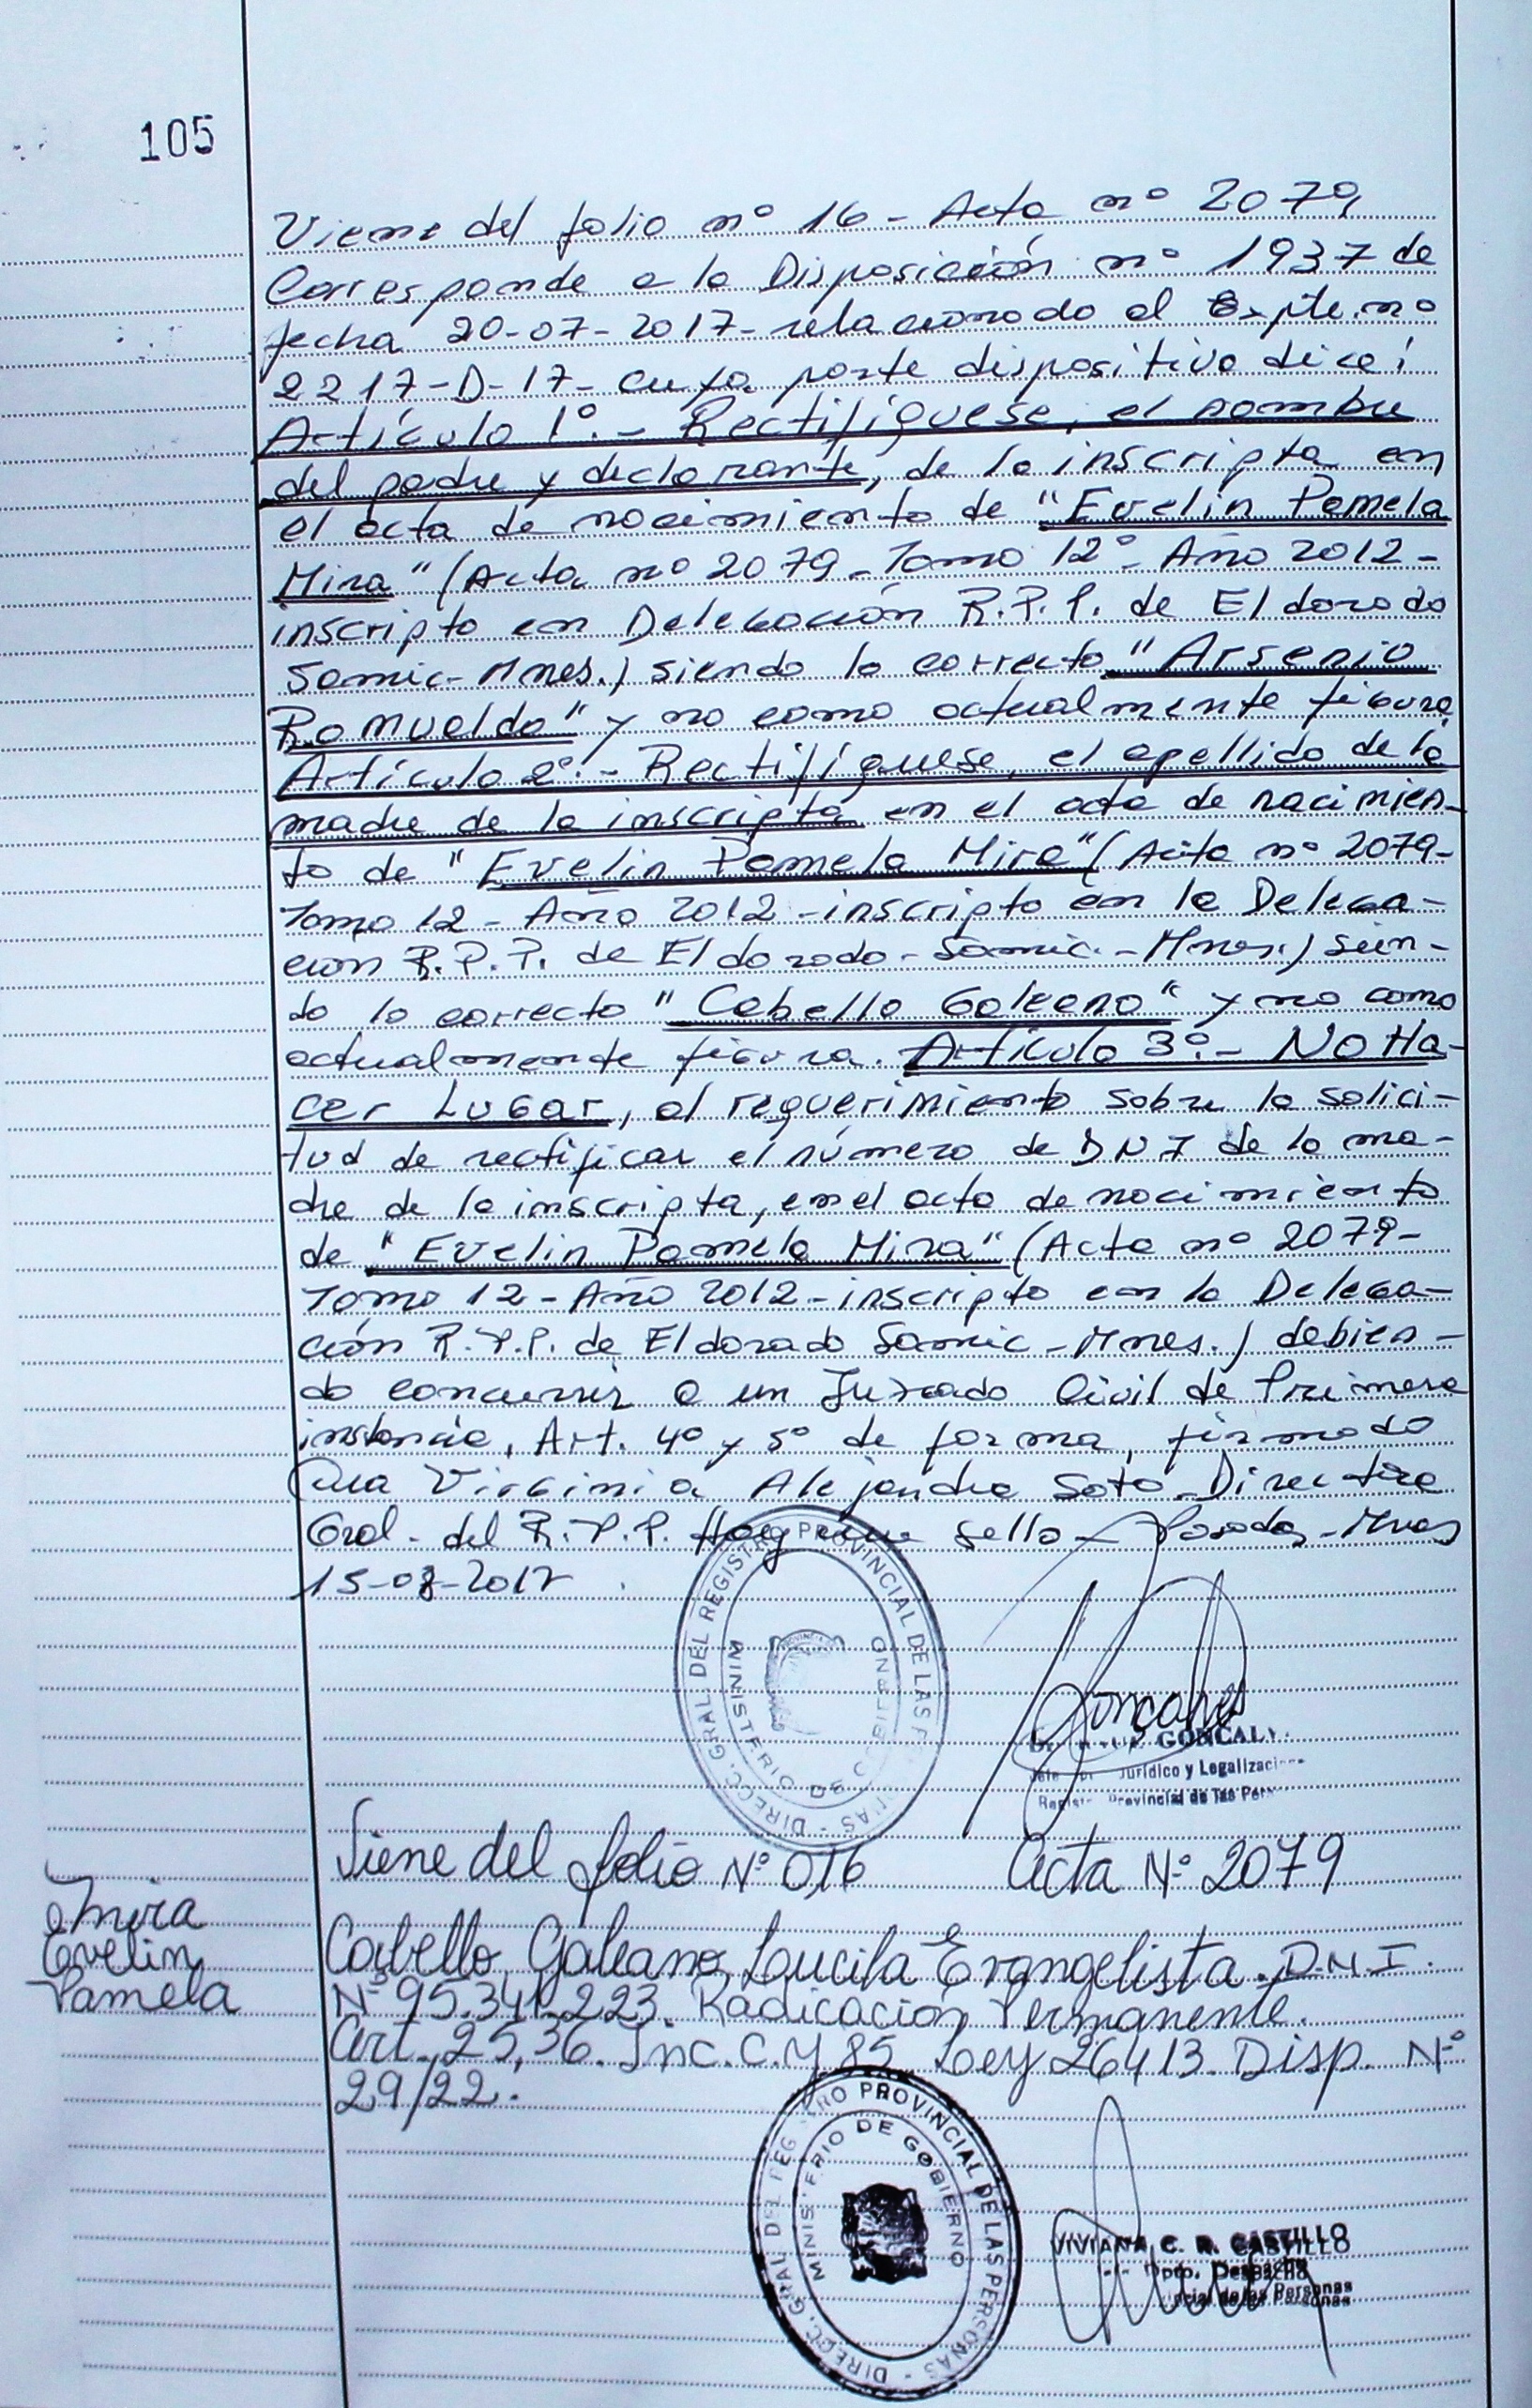 105
Viene del folio nº 16 - Acta nº 2079
Corresponde a la Disposición nº 1937 de
fecha 20-07-2017- relacionado al Expte. nº
2217-D-17- cuya parte dispositiva dice:
Artículo 1º.- Rectifíquese, el nombre
del padre y declarante, de la inscripta en
el acta de nacimiento de "Evelin Pamela
Mira" (Acta nº 2079 - Tomo 12º - Año 2012-
inscripto en Delegación R.P.P. de Eldorado
Samic- Mnes.) siendo lo correcto "Arsenio
Romualdo" y no como actualmente figura
Artículo 2º.- Rectifíquese, el apellido de la
madre de la inscripta en el acta de nacimien-
to de "Evelin Pamela Mira" (Acta nº 2079-
Tomo 12 - Año 2012 - inscripto en la Delega-
cion R.P.P. de Eldorado - Samic. - Mnes.) sien-
do lo correcto "Cabello Galeano" y no como
actualmente figura. Artículo 3º.- No Ha-
cer Lugar, al requerimiento sobre la solici-
tud de rectificar el número de DNI de la ma-
dre de la inscripta, en el acta de nacimiento
de "Evelin Pamela Mira" (Acta nº 2079-
Tomo 12 - Año 2012 - inscripto en la Delega-
ción R.P.P. de Eldorado Samic - Mnes.) debien-
do concurrir a un Juzgado Civil de Primera
instancia, Art. 4º y 5º de forma, firmado
Dra Virginia Alejandra Soto - Directora
Gral. del R.P.P. Hay un sello - Posadas - Mnes
DIRECC. GRAL. DEL REGISTRO PROVINCIAL DE LAS
MINISTERIO DE GOBIERNO
Goncalves
GONCAL
Jurídico y Legalizacion
Provincial de las Per
Viene del folio Nº 016 Acta Nº 2079
Mira
Evelin
Pamela
Cabello Galeano, Lucila Evangelista. D.N.I.
Nº 95.341.223. Radicación Permanente.
Art. 25, 36. Inc. C. y 85 Ley 26413. Disp. Nº
29/22.
DIRECC. GRAL. DEL REG RO PROVINCIAL DE LAS PERSONAS
MINISTERIO DE GOBIERNO
VIVIANA C. R. CASTILLO
Dpto. Despacho
ncial de las Personas